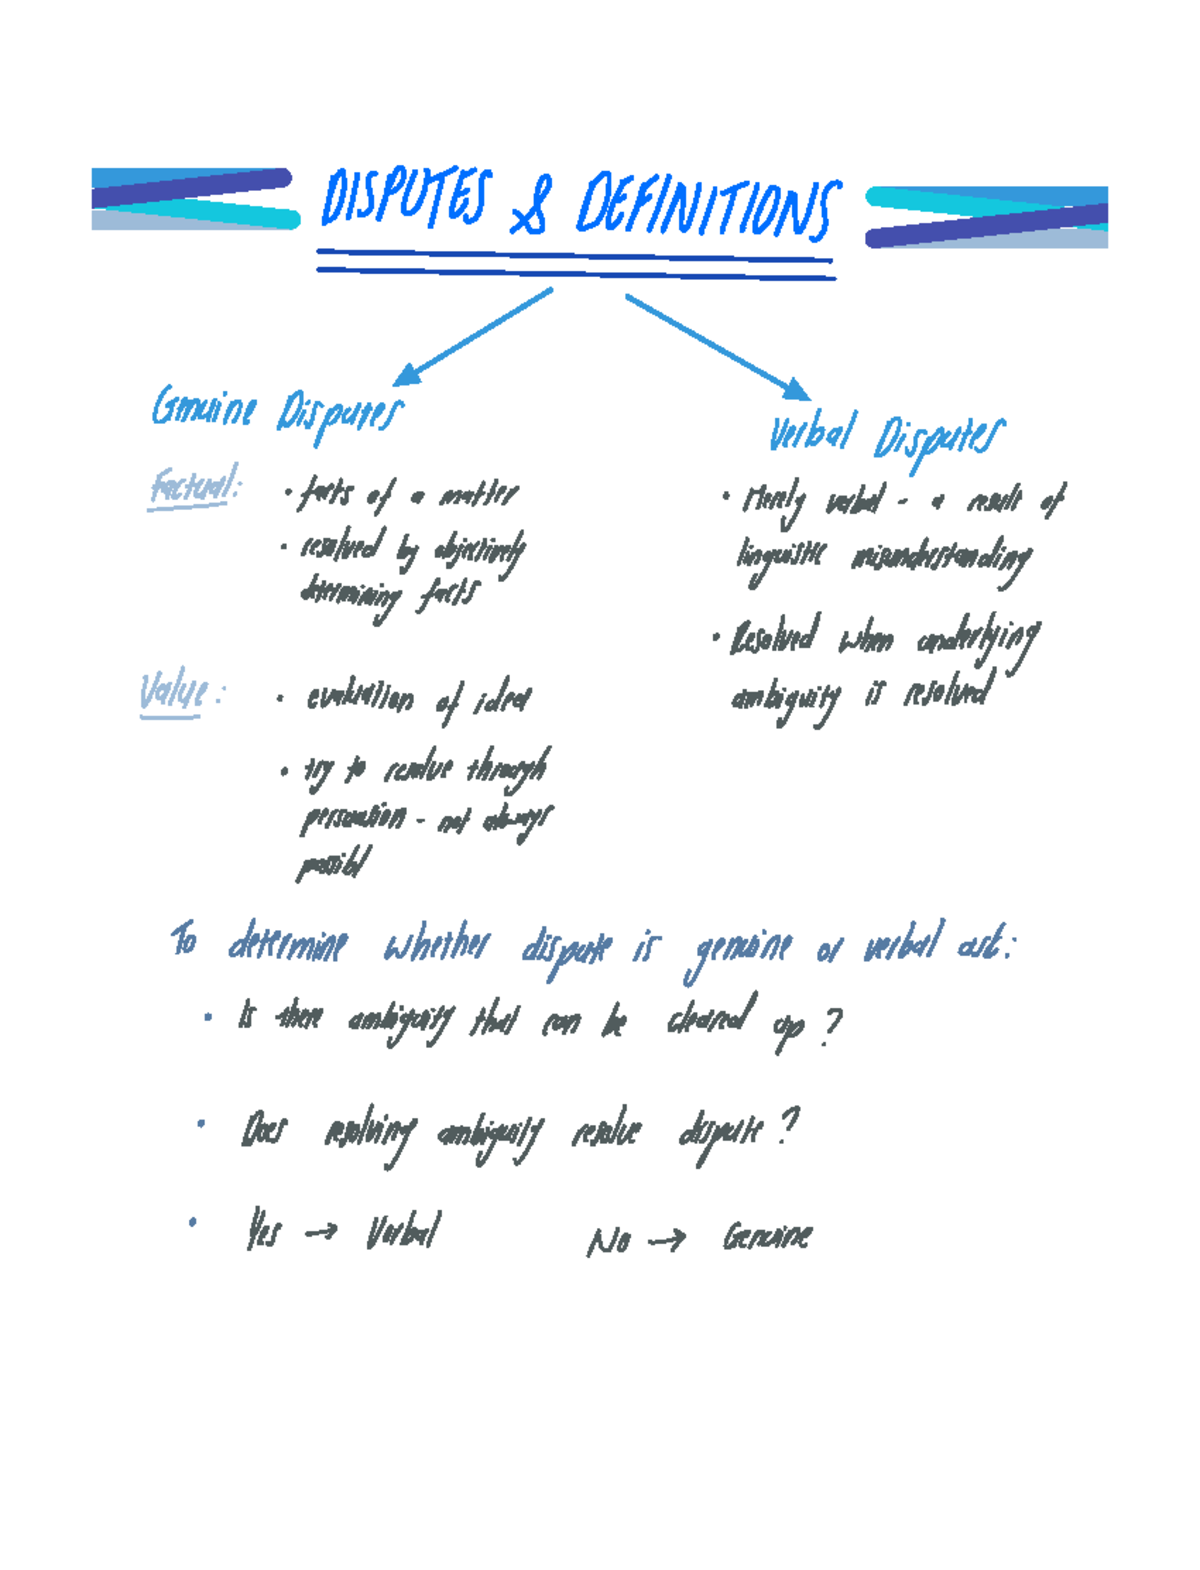 DISPUTES & DEFINITIONS
Genuine Disputes
Factual:
• facts of a matter
• resolved by objectively
determining facts
Value:
• evaluation of idea
• try to resolve through
persuation - not always
possibl
Verbal Disputes
• Merely verbal - a result of
linguistic misunderstanding
• Resolved when underlying
ambiguity is resolved
To determine whether dispute is genuine or verbal ask:
• Is there ambiguity that can be cleared up?
• Does resolving ambiguity resolve dispute?
• Yes → Verbal No → Genuine